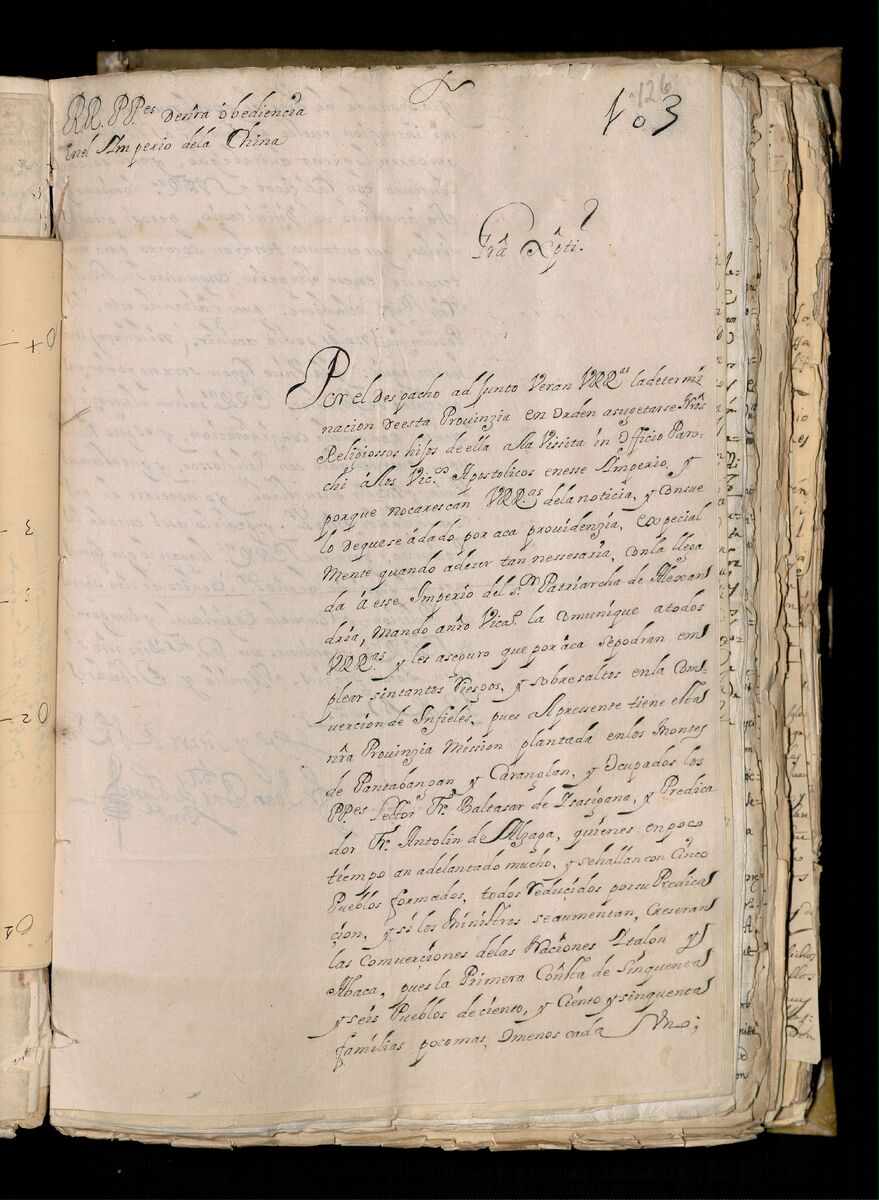 126
RR. PP.es de nrã obediencia
En el Imperio dela China
103
Grã Xpti.
Por el despacho adjunto Veran VRR.as la determi
nacion de esta Provinzia en Orden asugetarse Nrõs
Religiossos hijos de ella a la Vissita in Officio Paro-
chi á los Vic.s Apostolicos en esse Imperio, y
porque no carescan VRR.as dela noticia, y consue
lo de que se á dado por aca providenzia, especial
Mente quando a de ser tan nessesaria, con la llega
da á esse Imperio del S.or Patriarcha de Alexan
dria, Mando a nrõ Vica.o la Comunique a todos
VRR.as y les aseguro que por áca se podran em
plear sin tantos riesgos, y sobresaltos en la Com
vercion de Infieles, pues al pressente tiene esta
nrã Provinzia Mission plantada en los Montes
de Pantabangan y Caranglan, y Ocupados los
PP.es Lector Fr. Baltasar de Isasigana, y Predica
dor Fr. Antolin de Alzaga, quienes en poco
tiempo an adelantado mucho, y se hallan con Cinco
Pueblos formados, todos reducidos por su Predica
çion, y si los Ministros se aumentan, Creseran
las Comverciones delas Naciones Italon y
Abaca, pues la Primera Consta de Sinquenta
y seis Pueblos de ciento, y Ciento y sinquenta
familias poco mas, o menos cada Vno;